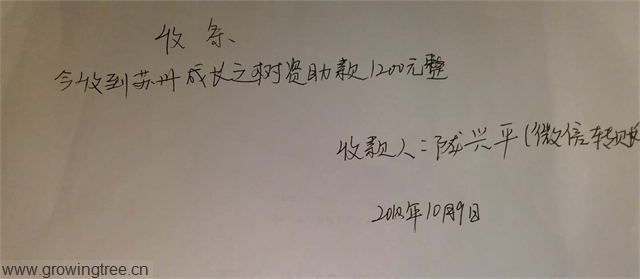 收条
今收到苏州成长之树资助款1200元整
收款人:陇兴平(微信转账
2018年10月9日
www.growingtree.cn